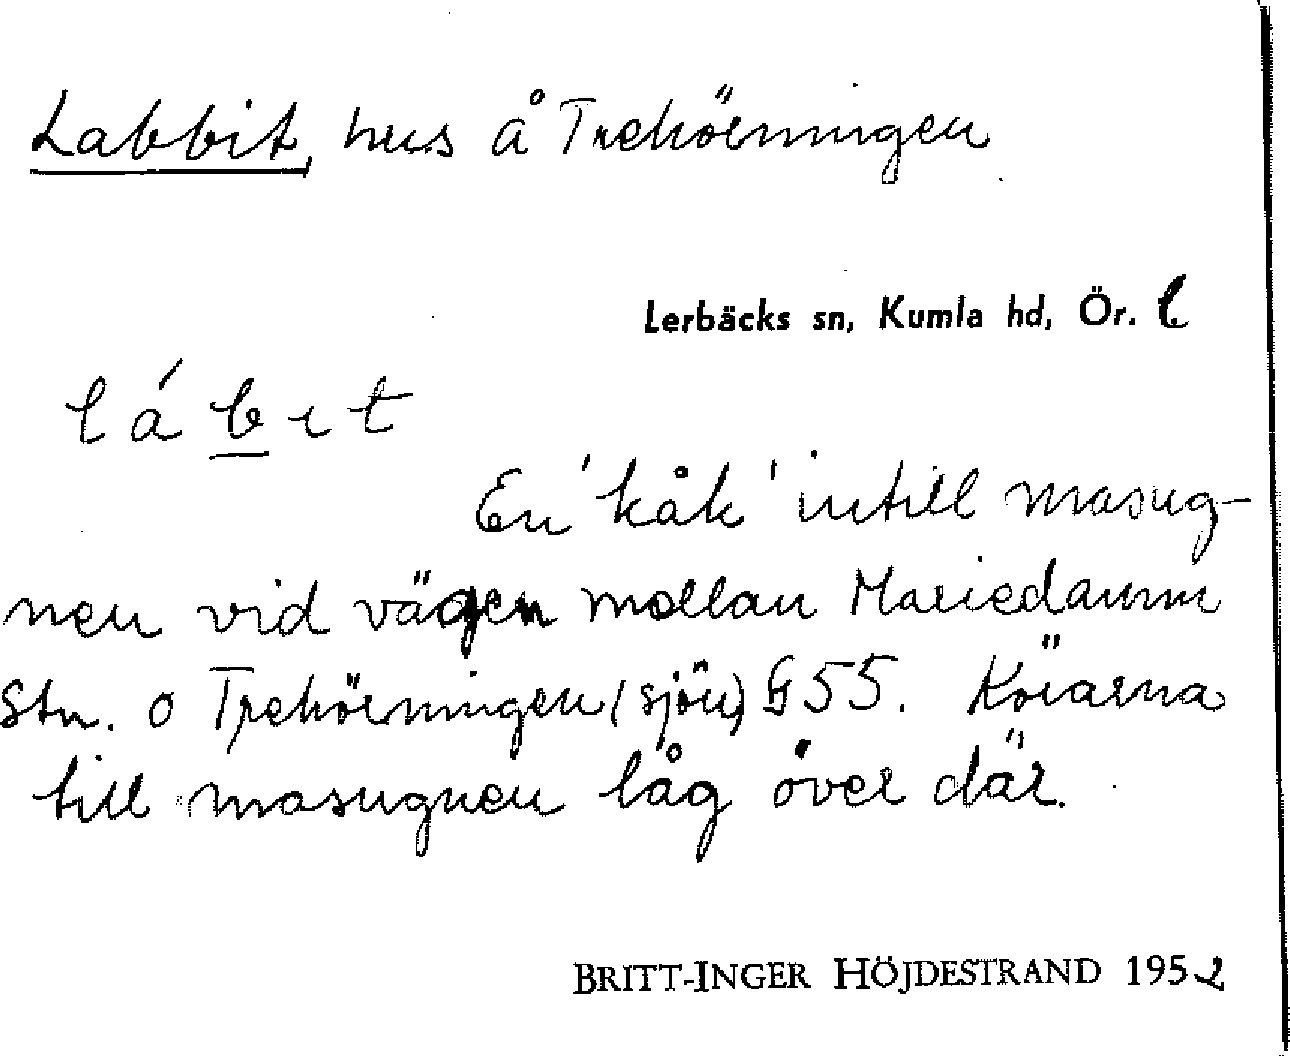 Labbit, hus å Trehörningen
Lerbäcks sn, Kumla hd, Ör. l
lábıt
En 'kåk' intill masug-
nen vid vägen mellan Mariedamm
Stn. o Trehörningen (sjön) § 55. Körarna
till masugnen låg över där.
BRITT-INGER HÖJDESTRAND 1952